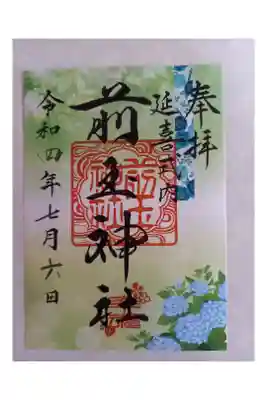 奉拝
延喜式内
前玉神社
令和四年七月六日